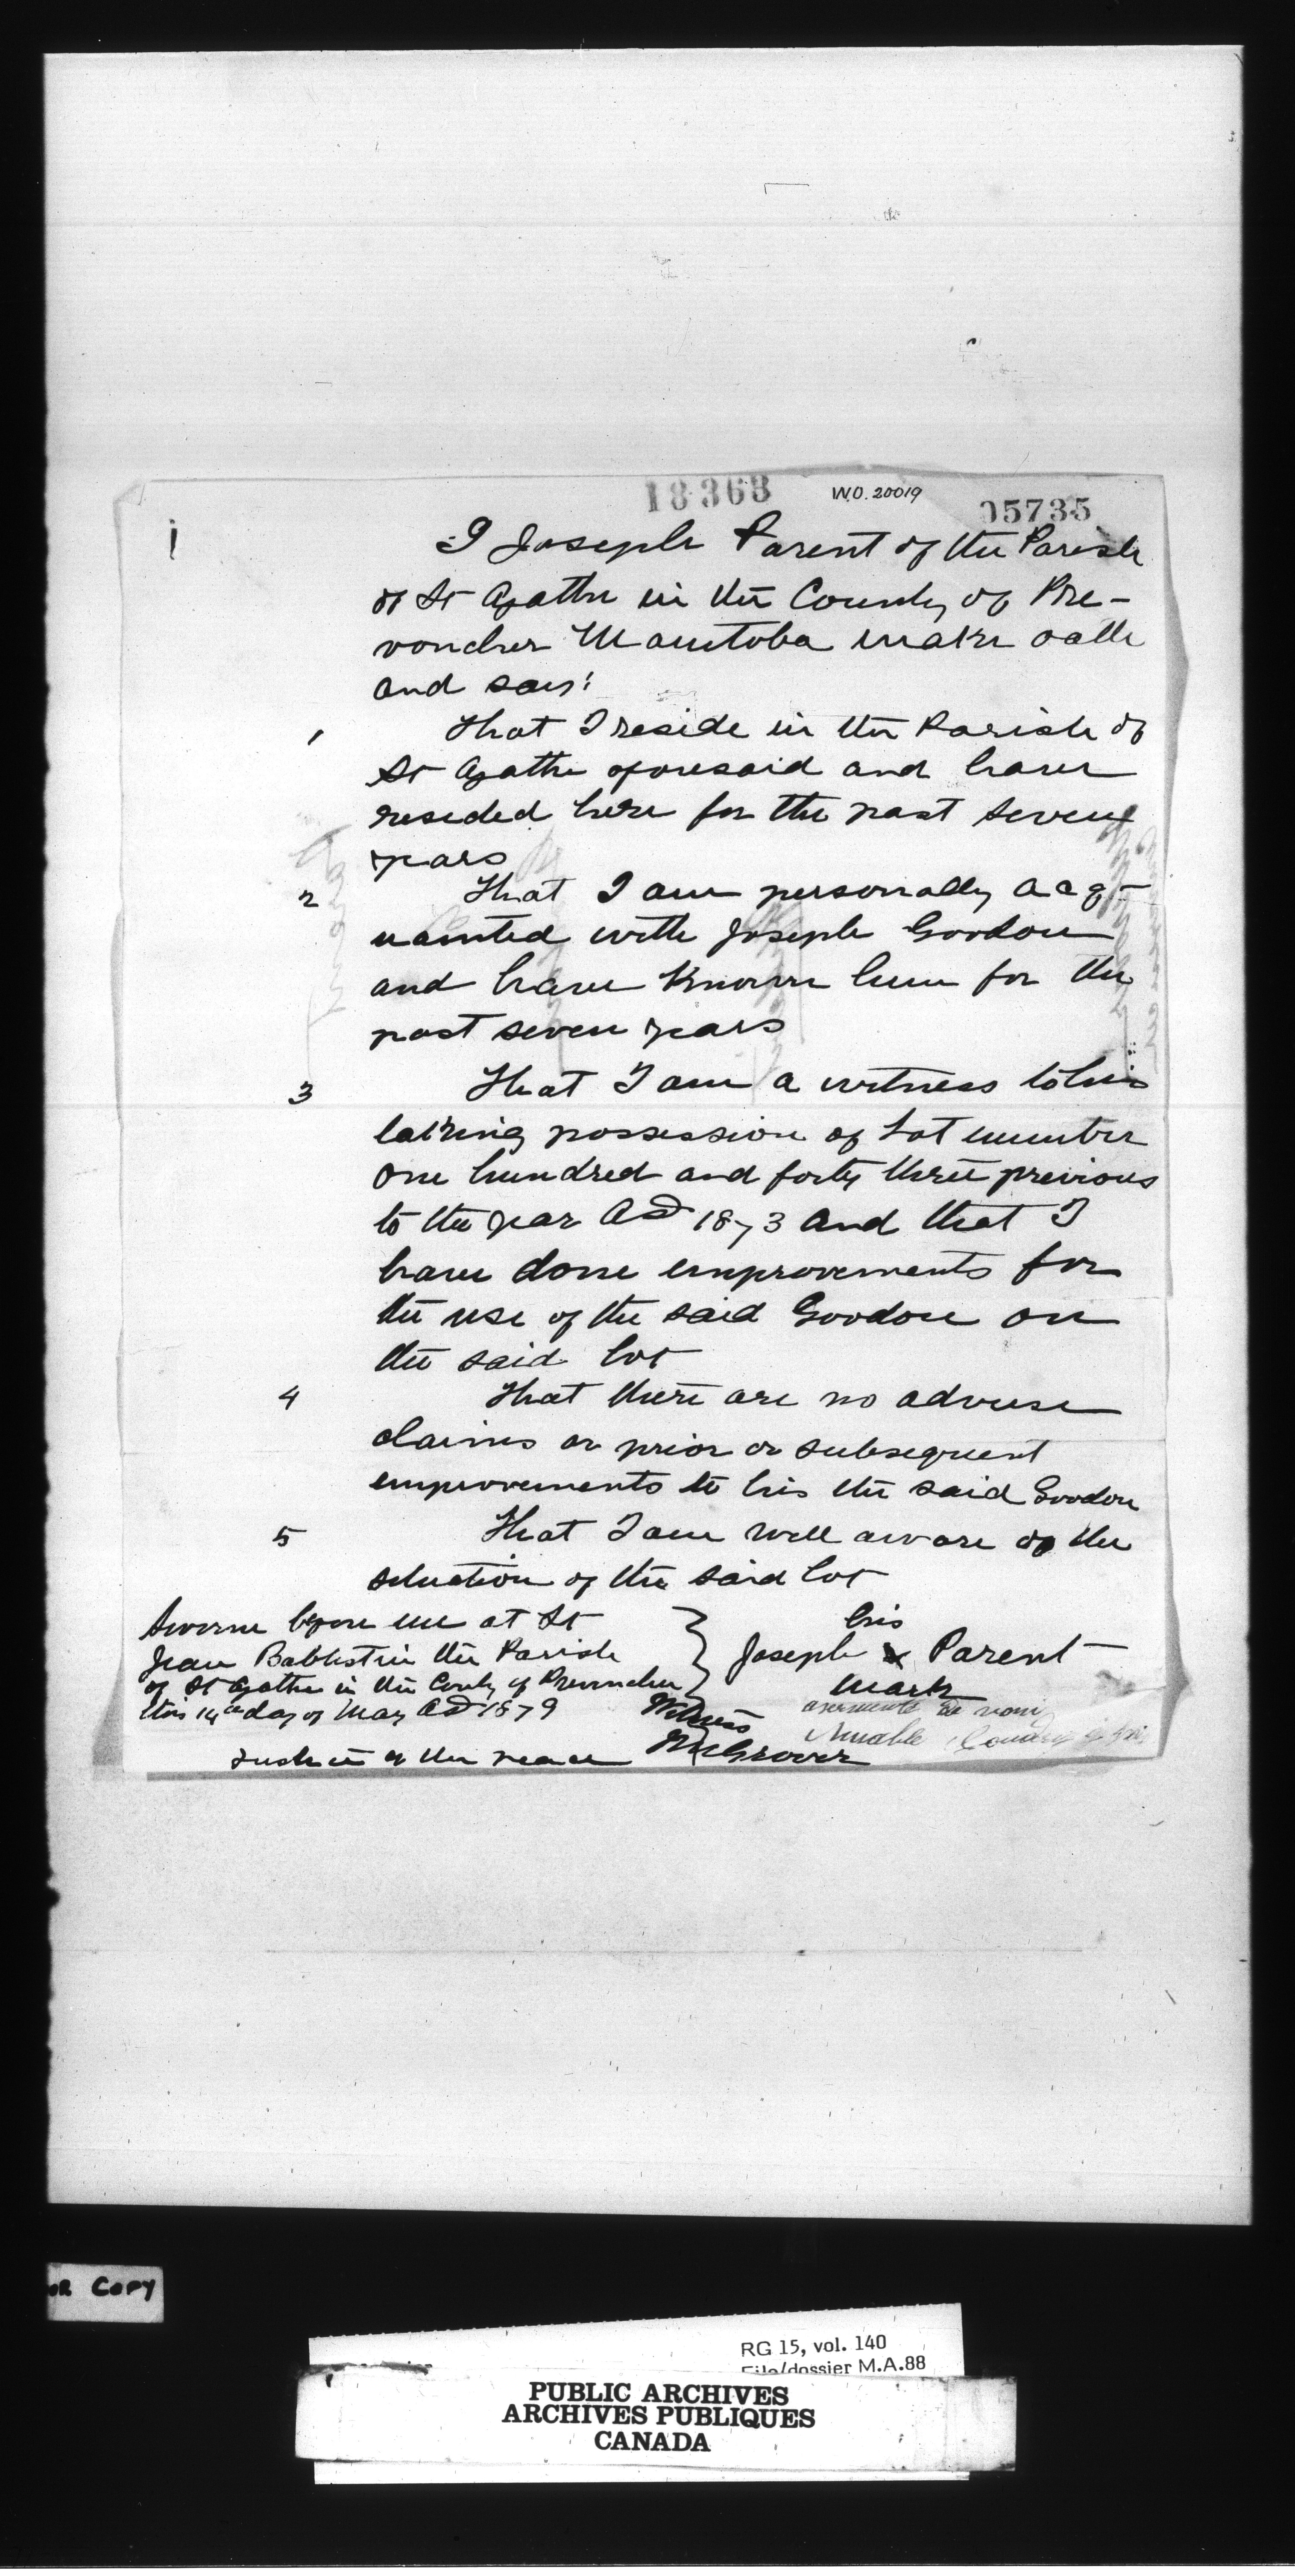 18368 W.O. 20019 05735
I Joseph Parent of the Parish
of St Agathe in the County of Pro-
vencher Manitoba make oath
and say:
1 That I reside in the Parish of
St Agathe aforesaid and have
resided here for the past seven
years
2 That I am personally acq-
uainted with Joseph Goodon
and have known him for the
past seven years
3 That I am a witness to his
taking possession of Lot number
one hundred and forty three previous
to the year AD 1873 and that I
have done improvements for
the use of the said Goodon on
the said lot
4 That there are no adverse
claims or prior or subsequent
improvements to his the said Goodon
5 That I am well aware of the
situation of the said lot
Sworne before me at St
Jean Babtist in the Parish
of St Agathe in the County of Provencher
this 14th day of May AD 1879
Justice of the peace
his
Joseph x Parent
mark
Witness
Grover
assermenté de
OR COPY
RG 15, vol. 140
File/dossier M.A.88
PUBLIC ARCHIVES
ARCHIVES PUBLIQUES
CANADA